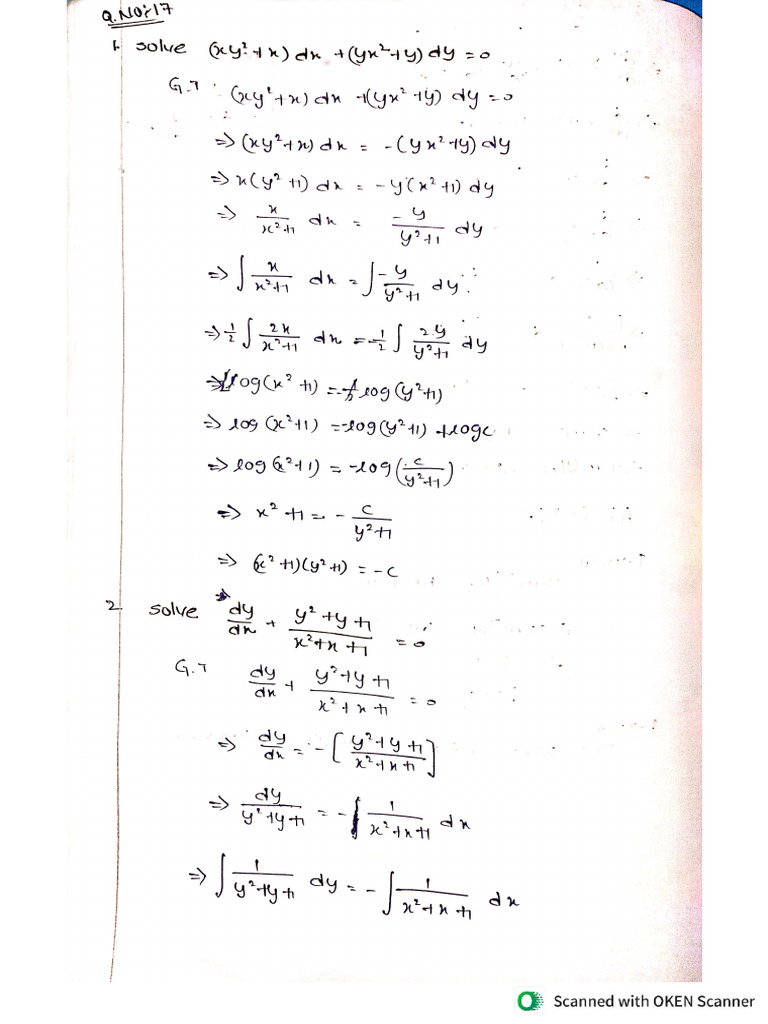 Q.NO:-17
1. solve (xy²+x) dx +(yx²+y) dy =0
G.T (xy²+x) dx +(yx²+y) dy =0
=> (xy²+x) dx = -(yx²+y) dy
=> x(y²+1) dx = -y(x²+1) dy
=> x/(x²+1) dx = -y/(y²+1) dy
=> ∫ x/(x²+1) dx = ∫ -y/(y²+1) dy
=> 1/2 ∫ 2x/(x²+1) dx = -1/2 ∫ 2y/(y²+1) dy
=> log(x²+1) = - log(y²+1)
=> log(x²+1) = -log(y²+1) +logc
=> log(x²+1) = -log(c/(y²+1))
=> x²+1 = - c/(y²+1)
=> (x²+1)(y²+1) = -c
2 solve dy/dx + (y²+y+1)/(x²+x+1) =0
G.T dy/dx + (y²+y+1)/(x²+x+1) =0
=> dy/dx = -[(y²+y+1)/(x²+x+1)]
=> dy/(y²+y+1) = -∫ 1/(x²+x+1) dx
=> ∫ 1/(y²+y+1) dy = -∫ 1/(x²+x+1) dx
Scanned with OKEN Scanner